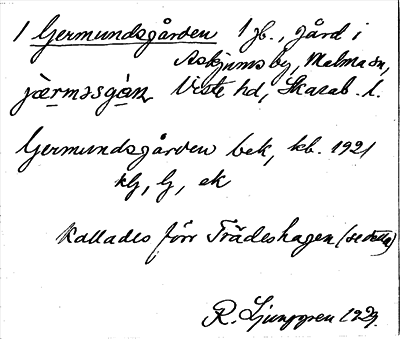 1 Germundsgården 1 jb., gård i
Askjums by, Malma sn,
jæ̀rmasgàn Viste hd, Skarab. l.
Germundsgården bek, kb. 1921
klj, lj, ek
Kallades förr Trädeshagen (se detta)
R. Ljunggren 1929.